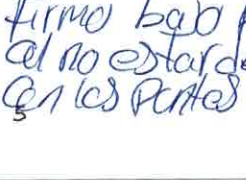 firmo bajo
al no estar de
en los puntos